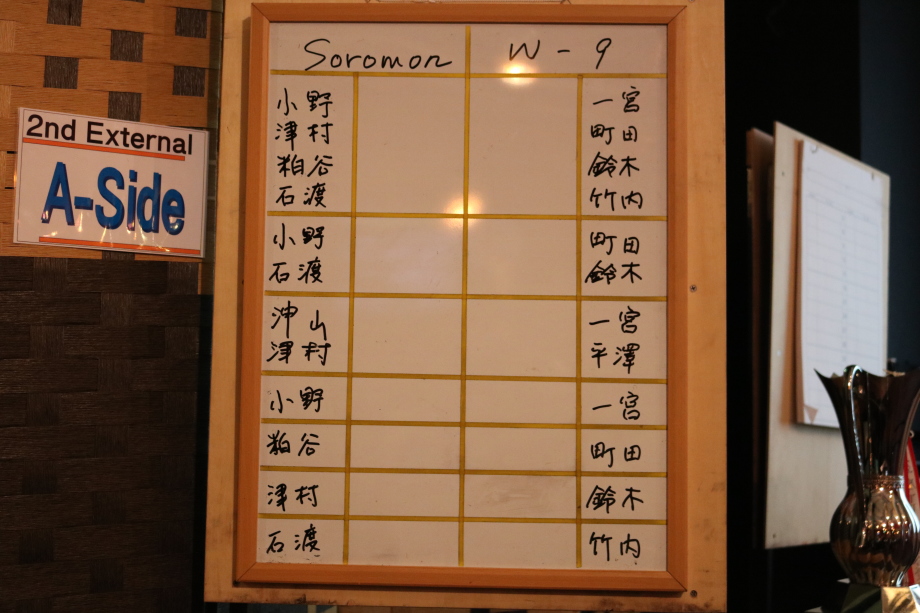 2nd External
A-Side
Soromon W-9
小野 一宮
津村 町田
粕谷 鈴木
石渡 竹内
小野 町田
石渡 鈴木
沖山 一宮
津村 平澤
小野 一宮
粕谷 町田
津村 鈴木
石渡 竹内